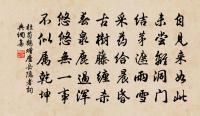 自見来如此
未嘗離洞門
結茅遮雨雪
采药給晨昏
古樹藤纏殺
春泉鹿過渾
悠悠無一事
不似屬乾坤
杜荀鶴贈廬岳隱者詞